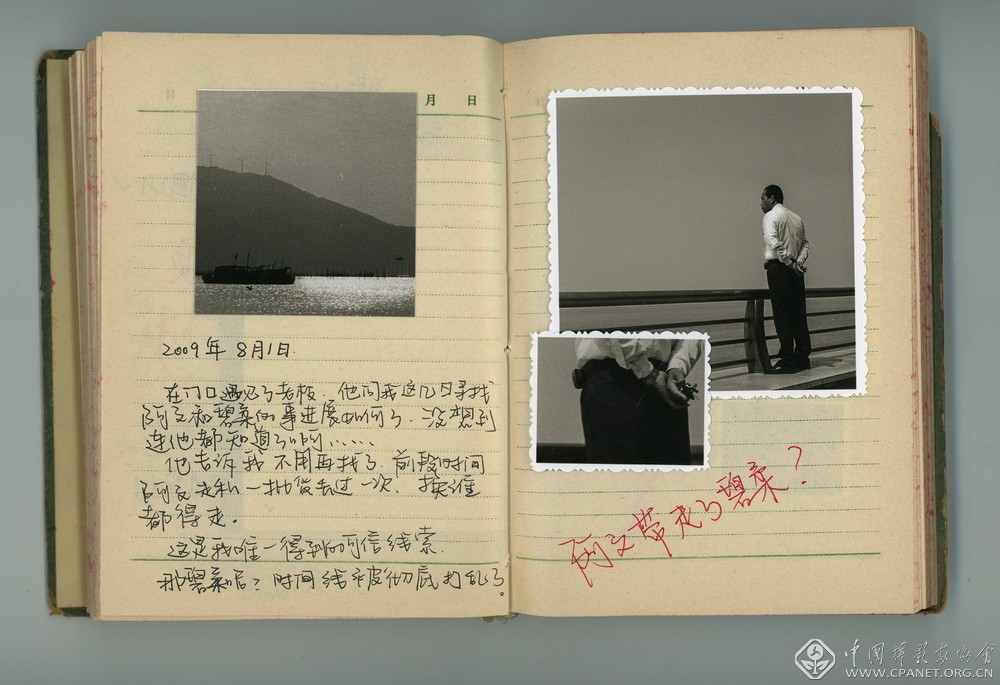 月 日
2009年 8月1日.
在门口遇见了老板. 他问我这几日寻找
阿文和碧柔的事进展如何了. 没想到
连他都知道了啊……
他告诉我不用再找了. 前段时间
阿文走私一批货去过一次. 换谁
都得走.
这是我唯一得到的可信线索.
那碧柔呢? 时间线索被彻底打乱了。
阿文带走了碧柔?
中国摄影家协会
WWW.CPANET.ORG.CN